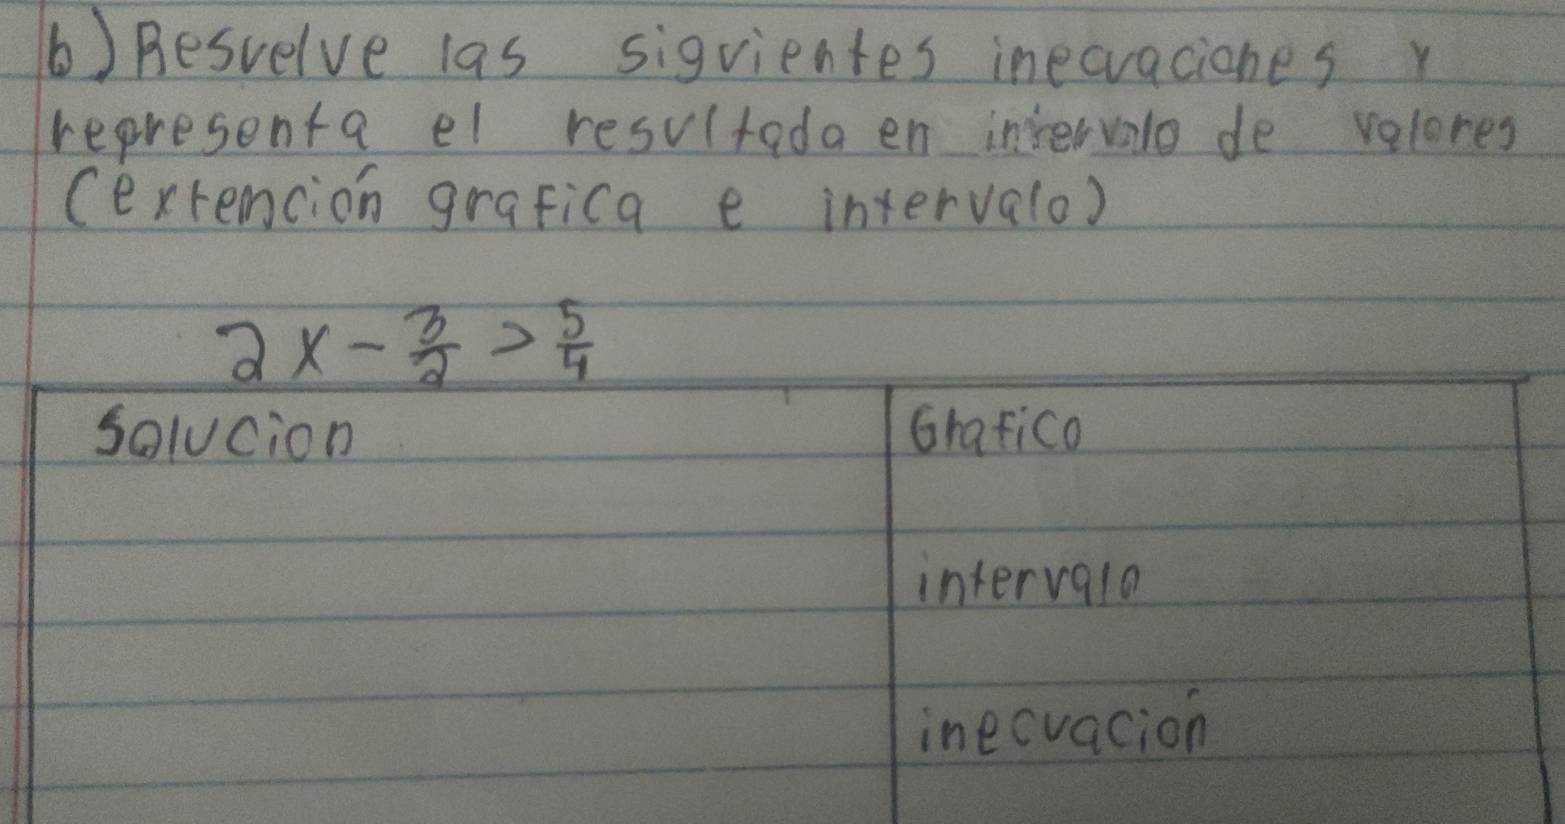 b) Resuelve las siguientes inecuaciones y
representa el resultado en intervalo de valores
(extención grafica e intervalo)
2x - 3/2 > 5/4
Solucion
Grafico
intervalo
inecuación